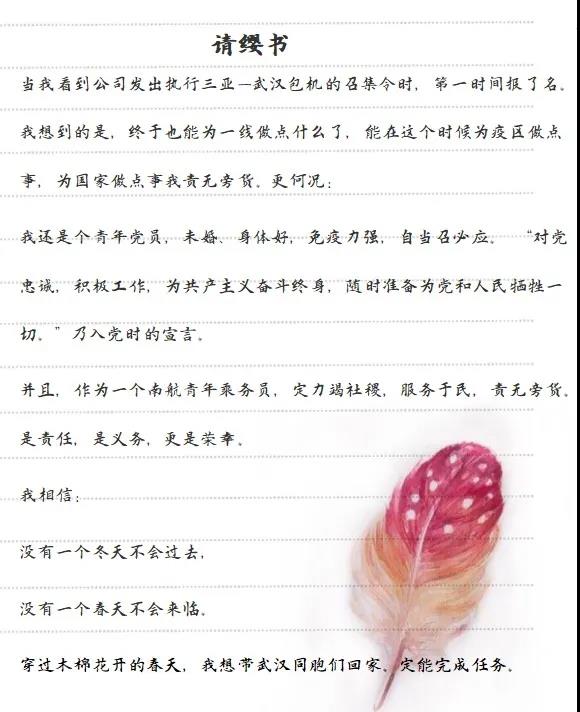 请缨书
当我看到公司发出执行三亚—武汉包机的召集令时，第一时间报了名。
我想到的是，终于也能为一线做点什么了，能在这个时候为疫区做点
事，为国家做点事我责无旁贷。更何况：
我还是个青年党员，未婚、身体好，免疫力强，自当召必应。“对党
忠诚，积极工作，为共产主义奋斗终身，随时准备为党和人民牺牲一
切。”乃入党时的宣言。
并且，作为一个南航青年乘务员，定力竭社稷，服务于民，责无旁贷。
是责任，是义务，更是荣幸。
我相信：
没有一个冬天不会过去，
没有一个春天不会来临。
穿过木棉花开的春天，我想带武汉同胞们回家、定能完成任务。